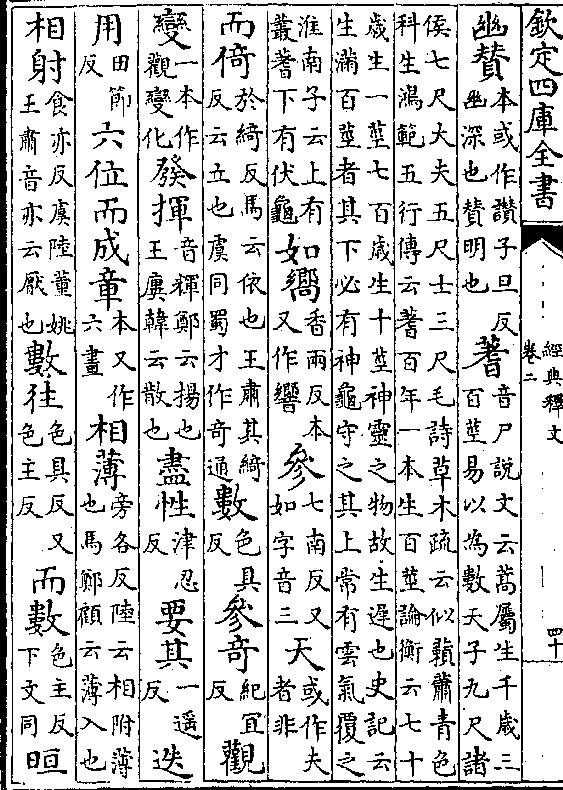 欽定四庫全書
經典釋文
卷二
四十
幽贊本或作讚子旦反幽深也贊明也蓍音尸說文云蒿屬生千歲三百莖易以為數天子九尺諸
侯七尺大夫五尺士三尺毛詩草木疏云似藾蕭青色
科生鴻範五行傳云蓍百年一本生百莖論衡云七十
歲生一莖七百歲生十莖神靈之物故生遲也史記云
生滿百莖者其下必有神龜守之其上常有雲氣覆之
淮南子云上有叢蓍下有伏龜如嚮香兩反本又作響參七南反又如字音三天或作夫者非
而倚於綺反馬云依也王肅其綺反云立也虞同蜀才作奇通數色具反參奇紀宜反觀
變一本作觀變化發揮音輝鄭云揚也王廙韓云散也盡性津忍反要其一遥反迭
用田節反六位而成章本又作六畫相薄旁各反陸云相附薄也馬鄭顧云薄入也
相射食亦反虞陸董姚王肅音亦云厭也數往色具反又色主反而數色主反下文同晅